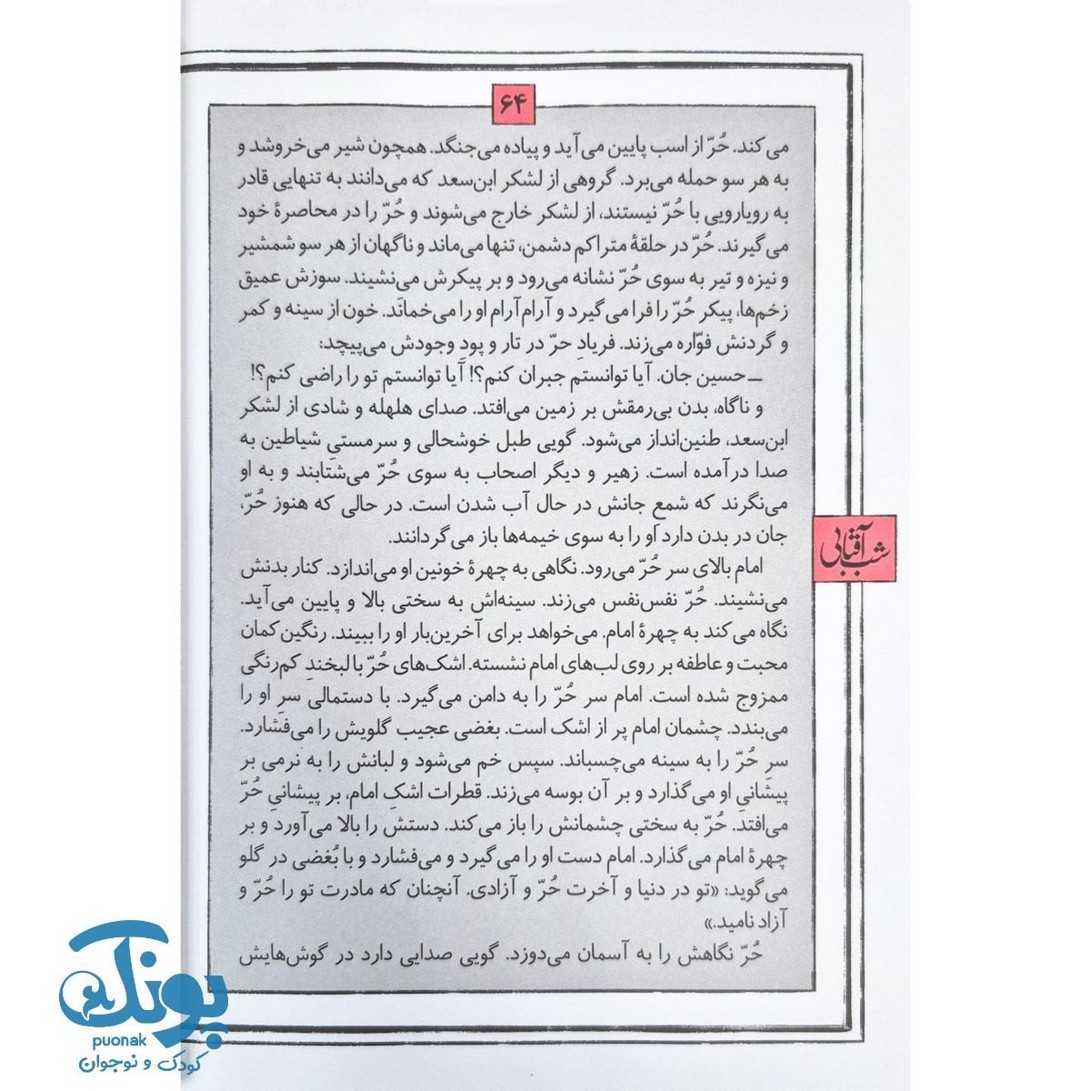 ۶۴
می‌کند. حُرّ از اسب پایین می‌آید و پیاده می‌جنگد. همچون شیر می‌خروشد و
به هر سو حمله می‌برد. گروهی از لشکر ابن‌سعد که می‌دانند به تنهایی قادر
به رویارویی با حُرّ نیستند، از لشکر خارج می‌شوند و حُرّ را در محاصرهٔ خود
می‌گیرند. حُرّ در حلقهٔ متراکم دشمن، تنها می‌ماند و ناگهان از هر سو شمشیر
و نیزه و تیر به سوی حُرّ نشانه می‌رود و بر پیکرش می‌نشیند. سوزش عمیق
زخم‌ها، پیکر حُرّ را فرا می‌گیرد و آرام‌آرام او را می‌خمانَد. خون از سینه و کمر
و گردنش فوّاره می‌زند. فریادِ حرّ در تار و پودِ وجودش می‌پیچد:
ــ حسین جان. آیا توانستم جبران کنم؟! آیا توانستم تو را راضی کنم؟!
و ناگاه، بدن بی‌رمقش بر زمین می‌افتد. صدای هلهله و شادی از لشکر
ابن‌سعد، طنین‌انداز می‌شود. گویی طبل خوشحالی و سرمستیِ شیاطین به
صدا درآمده است. زهیر و دیگر اصحاب به سوی حُرّ می‌شتابند و به او
می‌نگرند که شمعِ جانش در حال آب شدن است. در حالی که هنوز حُرّ،
جان در بدن دارد او را به سوی خیمه‌ها باز می‌گردانند.
شب آفتابی
امام بالای سر حُرّ می‌رود. نگاهی به چهرهٔ خونین او می‌اندازد. کنار بدنش
می‌نشیند. حُرّ نفس‌نفس می‌زند. سینه‌اش به سختی بالا و پایین می‌آید.
نگاه می‌کند به چهرهٔ امام. می‌خواهد برای آخرین‌بار او را ببیند. رنگین‌کمان
محبت و عاطفه بر روی لب‌های امام نشسته. اشک‌های حُرّ با لبخندِ کم‌رنگی
ممزوج شده است. امام سر حُرّ را به دامن می‌گیرد. با دستمالی سرِ او را
می‌بندد. چشمان امام پر از اشک است. بغضی عجیب گلویش را می‌فشارد.
سرِ حُرّ را به سینه می‌چسباند. سپس خم می‌شود و لبانش را به نرمی بر
پیشانیِ او می‌گذارد و بر آن بوسه می‌زند. قطرات اشکِ امام، بر پیشانیِ حُرّ
می‌افتد. حُرّ به سختی چشمانش را باز می‌کند. دستش را بالا می‌آورد و بر
چهرهٔ امام می‌گذارد. امام دست او را می‌گیرد و می‌فشارد و با بُغضی در گلو
می‌گوید: «تو در دنیا و آخرت حُرّ و آزادی. آنچنان که مادرت تو را حُرّ و
آزاد نامید.»
حُرّ نگاهش را به آسمان می‌دوزد. گویی صدایی دارد در گوش‌هایش
پونک
puonak
کودک و نوجوان